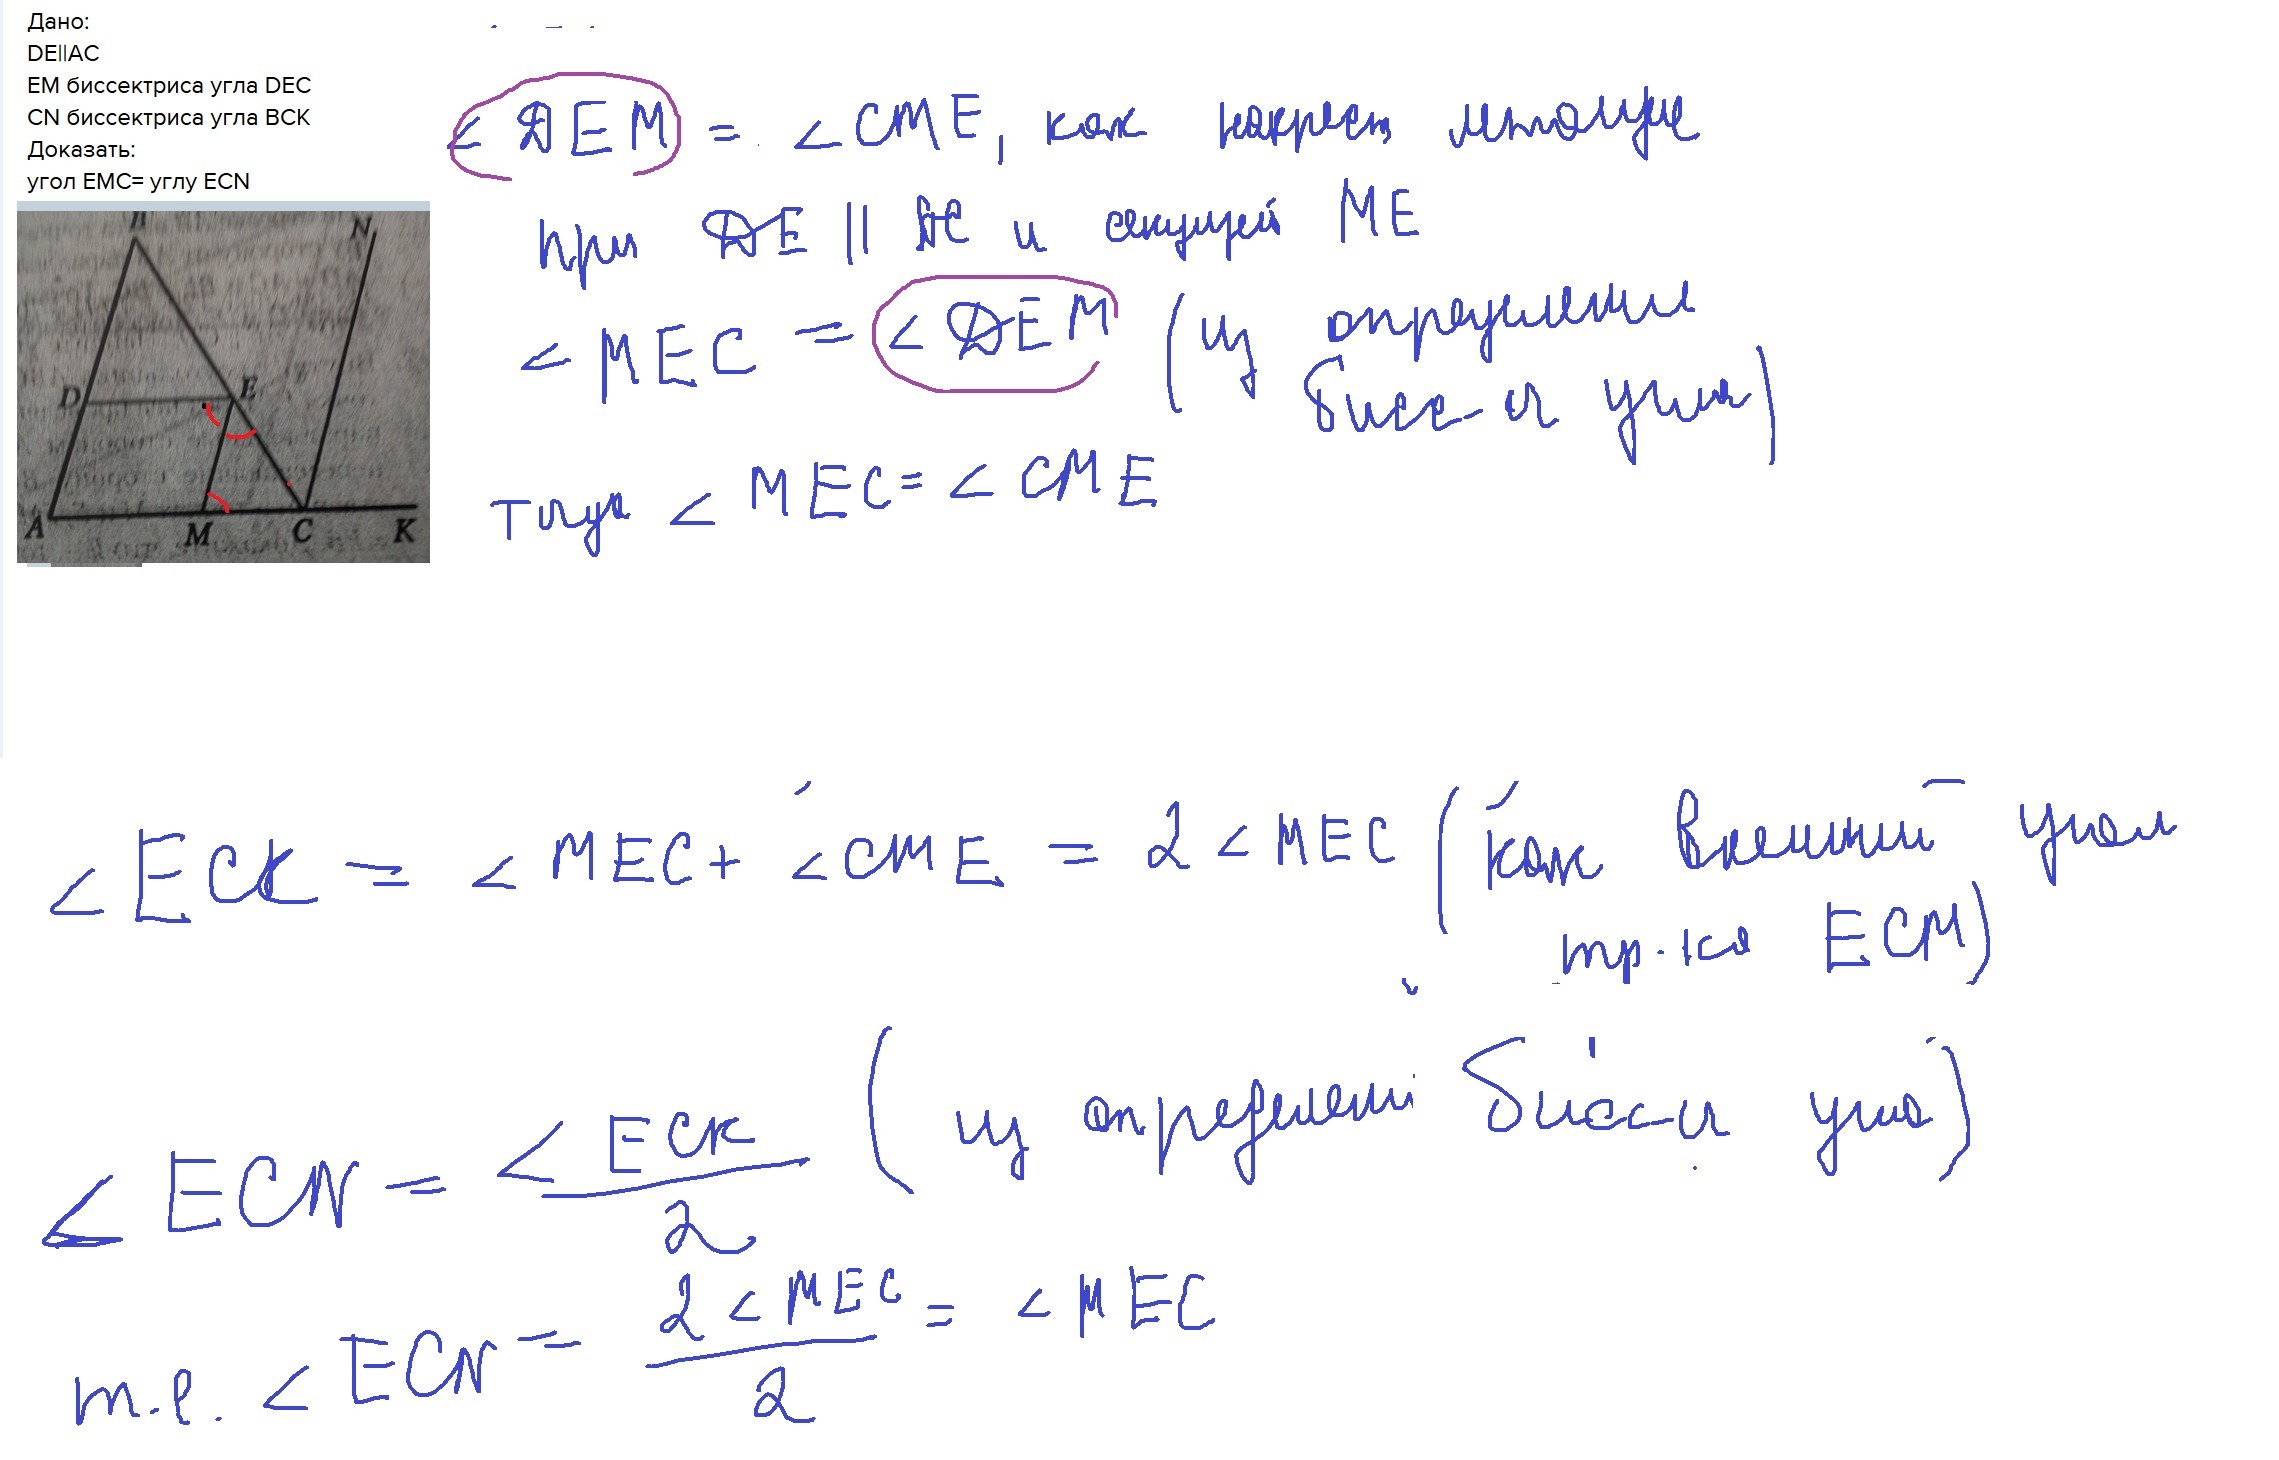 Дано:
DE||AC
EM биссектриса угла DEC
CN биссектриса угла BCK
Доказать:
угол EMC= углу ECN
B
N
D
E
A
M
C
K
∠ DEM = ∠CME, как накрест лежащие
при DE || AC и секущей ME
∠ MEC = ∠ DEM (из определения
бисс-и угла)
тогда ∠ MEC = ∠ CME
∠ ECK = ∠ MEC + ∠CME = 2 ∠ MEC (как внешний угол
тр-ка ECM)
∠ ECN = ∠ ECK / 2 (из определения бисс-и угла)
т.е. ∠ ECN = 2 ∠ MEC / 2 = ∠ MEC